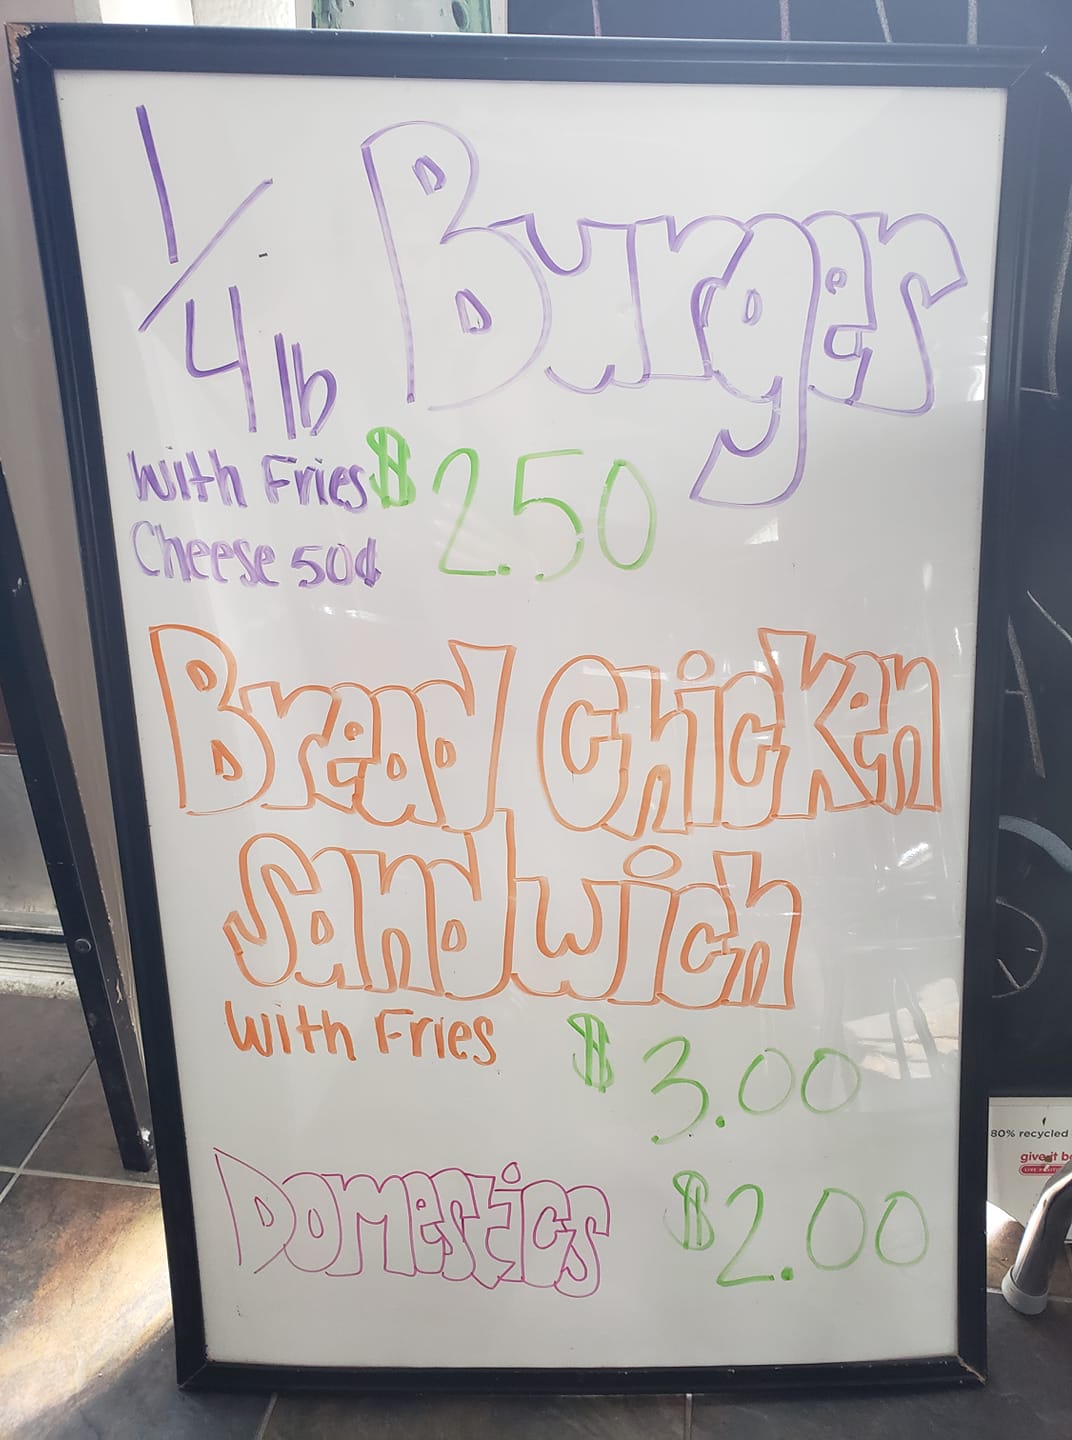 1/4 lb Burger
With Fries $2.50
Cheese 50¢
Bread Chicken
Sandwich
With Fries $3.00
Domestics $2.00
80% recycled